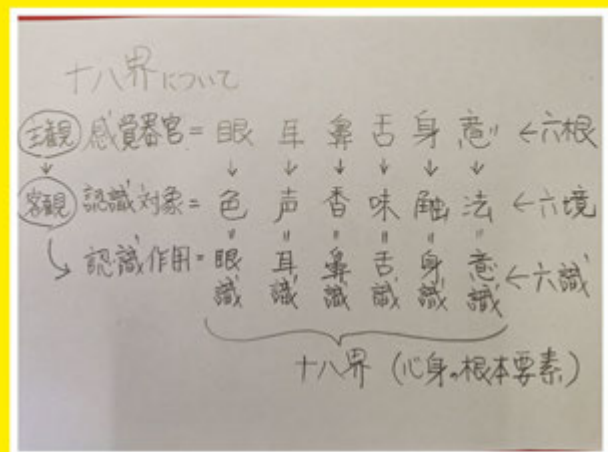 十八界について
主観 感覚器官=眼 耳 鼻 舌 身 意 ←六根
↓ ↓ ↓ ↓ ↓ ↓ ↓
客観 認識対象=色 声 香 味 触 法 ←六境
認識作用=眼識 耳識 鼻識 舌識 身識 意識 ←六識
十八界(心身の根本要素)